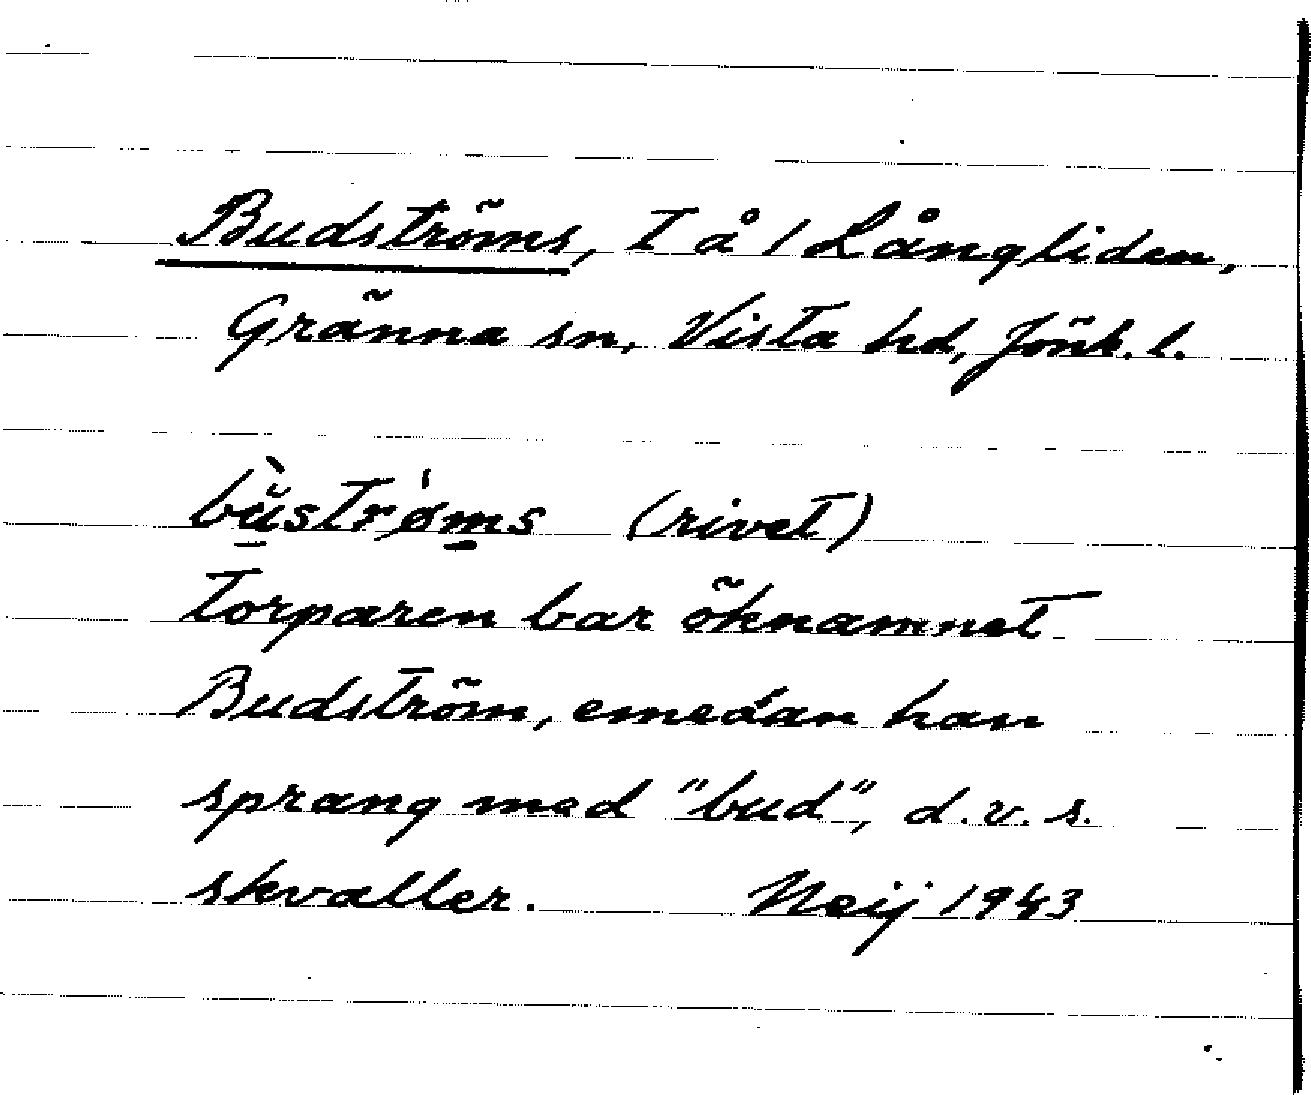 Budströms, T å 1 Långliden,
Gränna sn, Vista hd, Jönk. l.
(rivet)
Torparen bar öknamnet
Budström, emedan han
sprang med "bud", d.v.s.
skvaller. Neij 1943